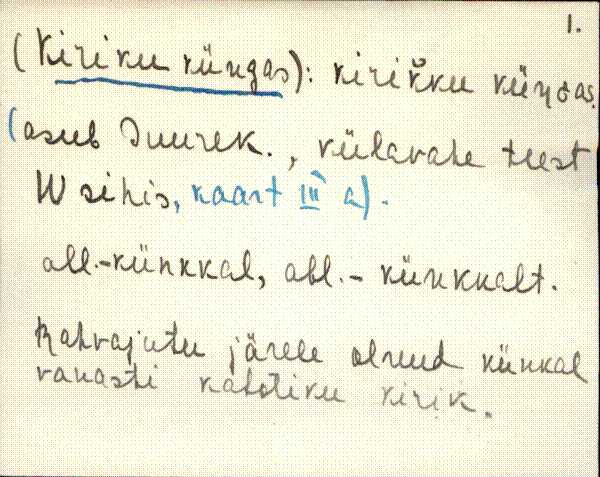 1.
(Kiriku küngas): kirikku küngas.
(asub Suurek., külavahe teest
W sihis, kaart III a).
all.-künkkal, abl.- künkkalt.
Rahvajutu järele olnud künkal
vanasti katoliku kirik.